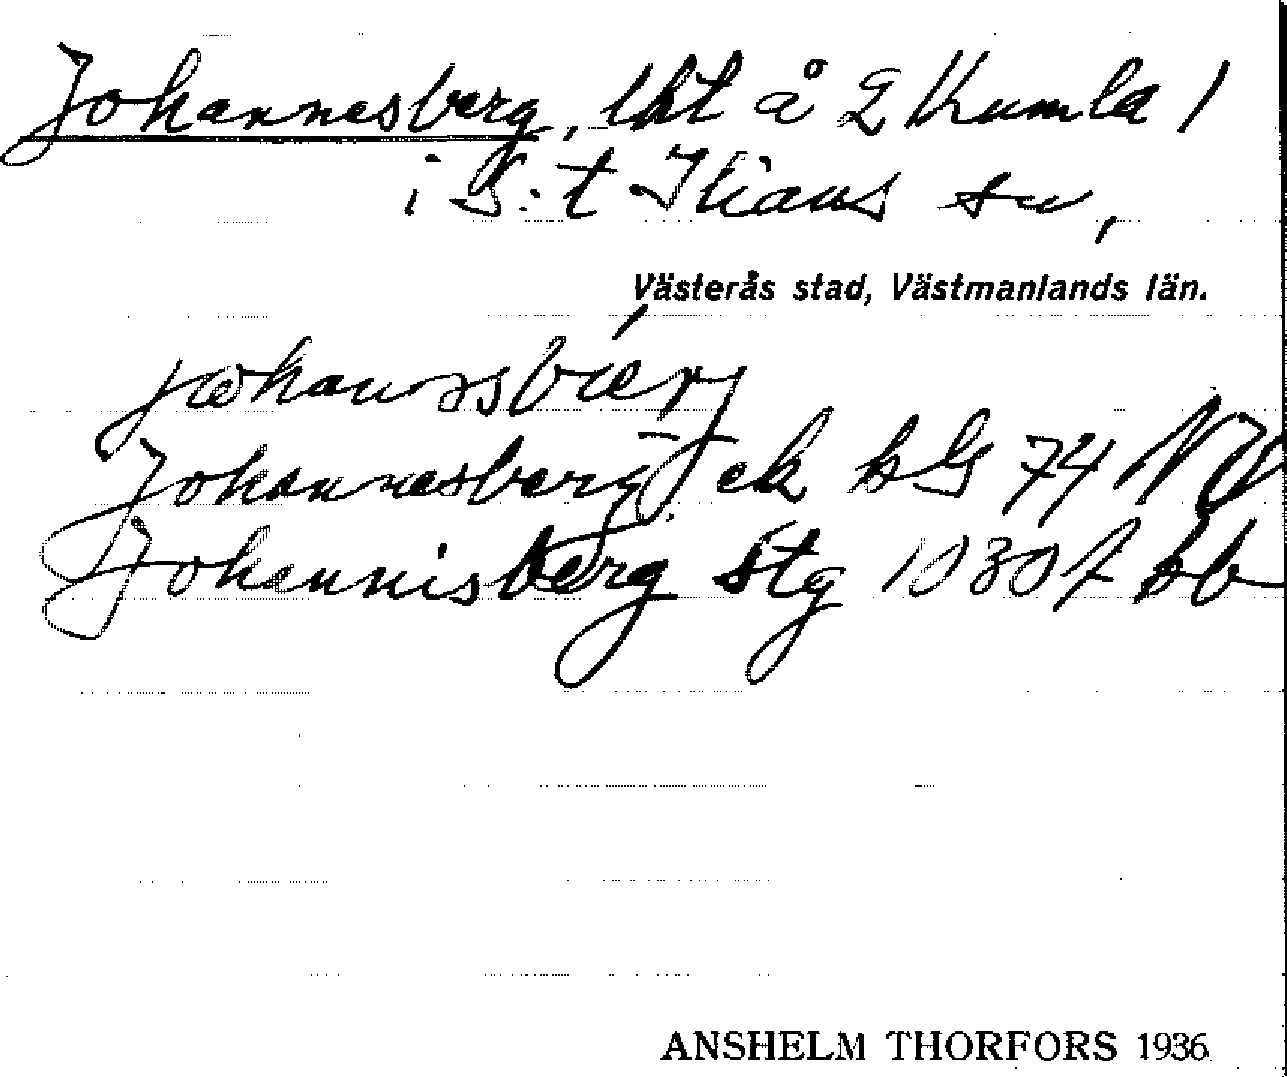 Johannesberg, lht å 2 Kumla 1
i S:t Ilians sn,
Västerås stad, Västmanlands län.
Johannesberg ek bl 74 NV
Johannisberg Stg 1030 f sb
ANSHELM THORFORS 1936